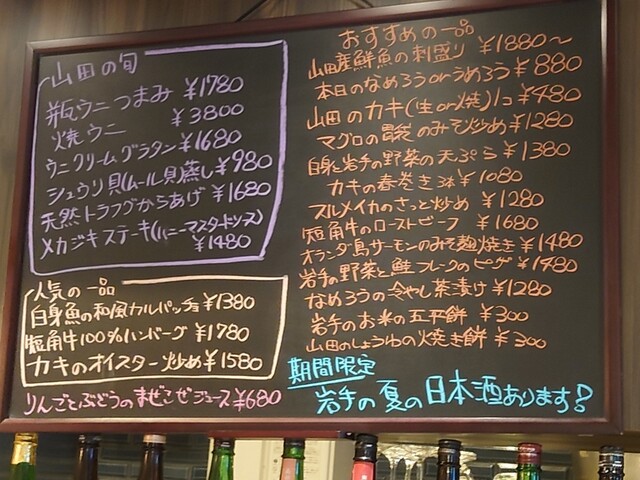 山田の旬
瓶ウニつまみ ¥1780
焼ウニ ¥3800
ウニクリームグラタン ¥1680
シュウリ貝(ムール貝)蒸し ¥980
天然トラフグからあげ ¥1680
メカジキステーキ(ハニーマスタードソース)
¥1480
人気の一品
白身魚の和風カルパッチョ ¥1380
短角牛100%ハンバーグ ¥1780
カキのオイスター炒め ¥1580
りんごとぶどうのまぜこぜジュース ¥680
おすすめの一品
山田産鮮魚の刺盛り ¥1880～
本日のなめろうorうめろう ¥880
山田のカキ(生or焼)1コ ¥480
マグロの胃袋のみそ炒め ¥1280
白身と岩手の野菜の天ぷら ¥1380
カキの春巻き3本 ¥1080
スルメイカのさっと炒め ¥1280
短角牛のローストビーフ ¥1680
オランダ島サーモンのみそ麹焼き ¥1480
岩手の野菜と鮭フレークのピザ ¥1480
なめろうの冷やし茶漬け ¥1280
岩手のお米の五平餅 ¥300
山田のしょうゆの焼き餅 ¥300
期間限定
岩手の夏の日本酒あります!